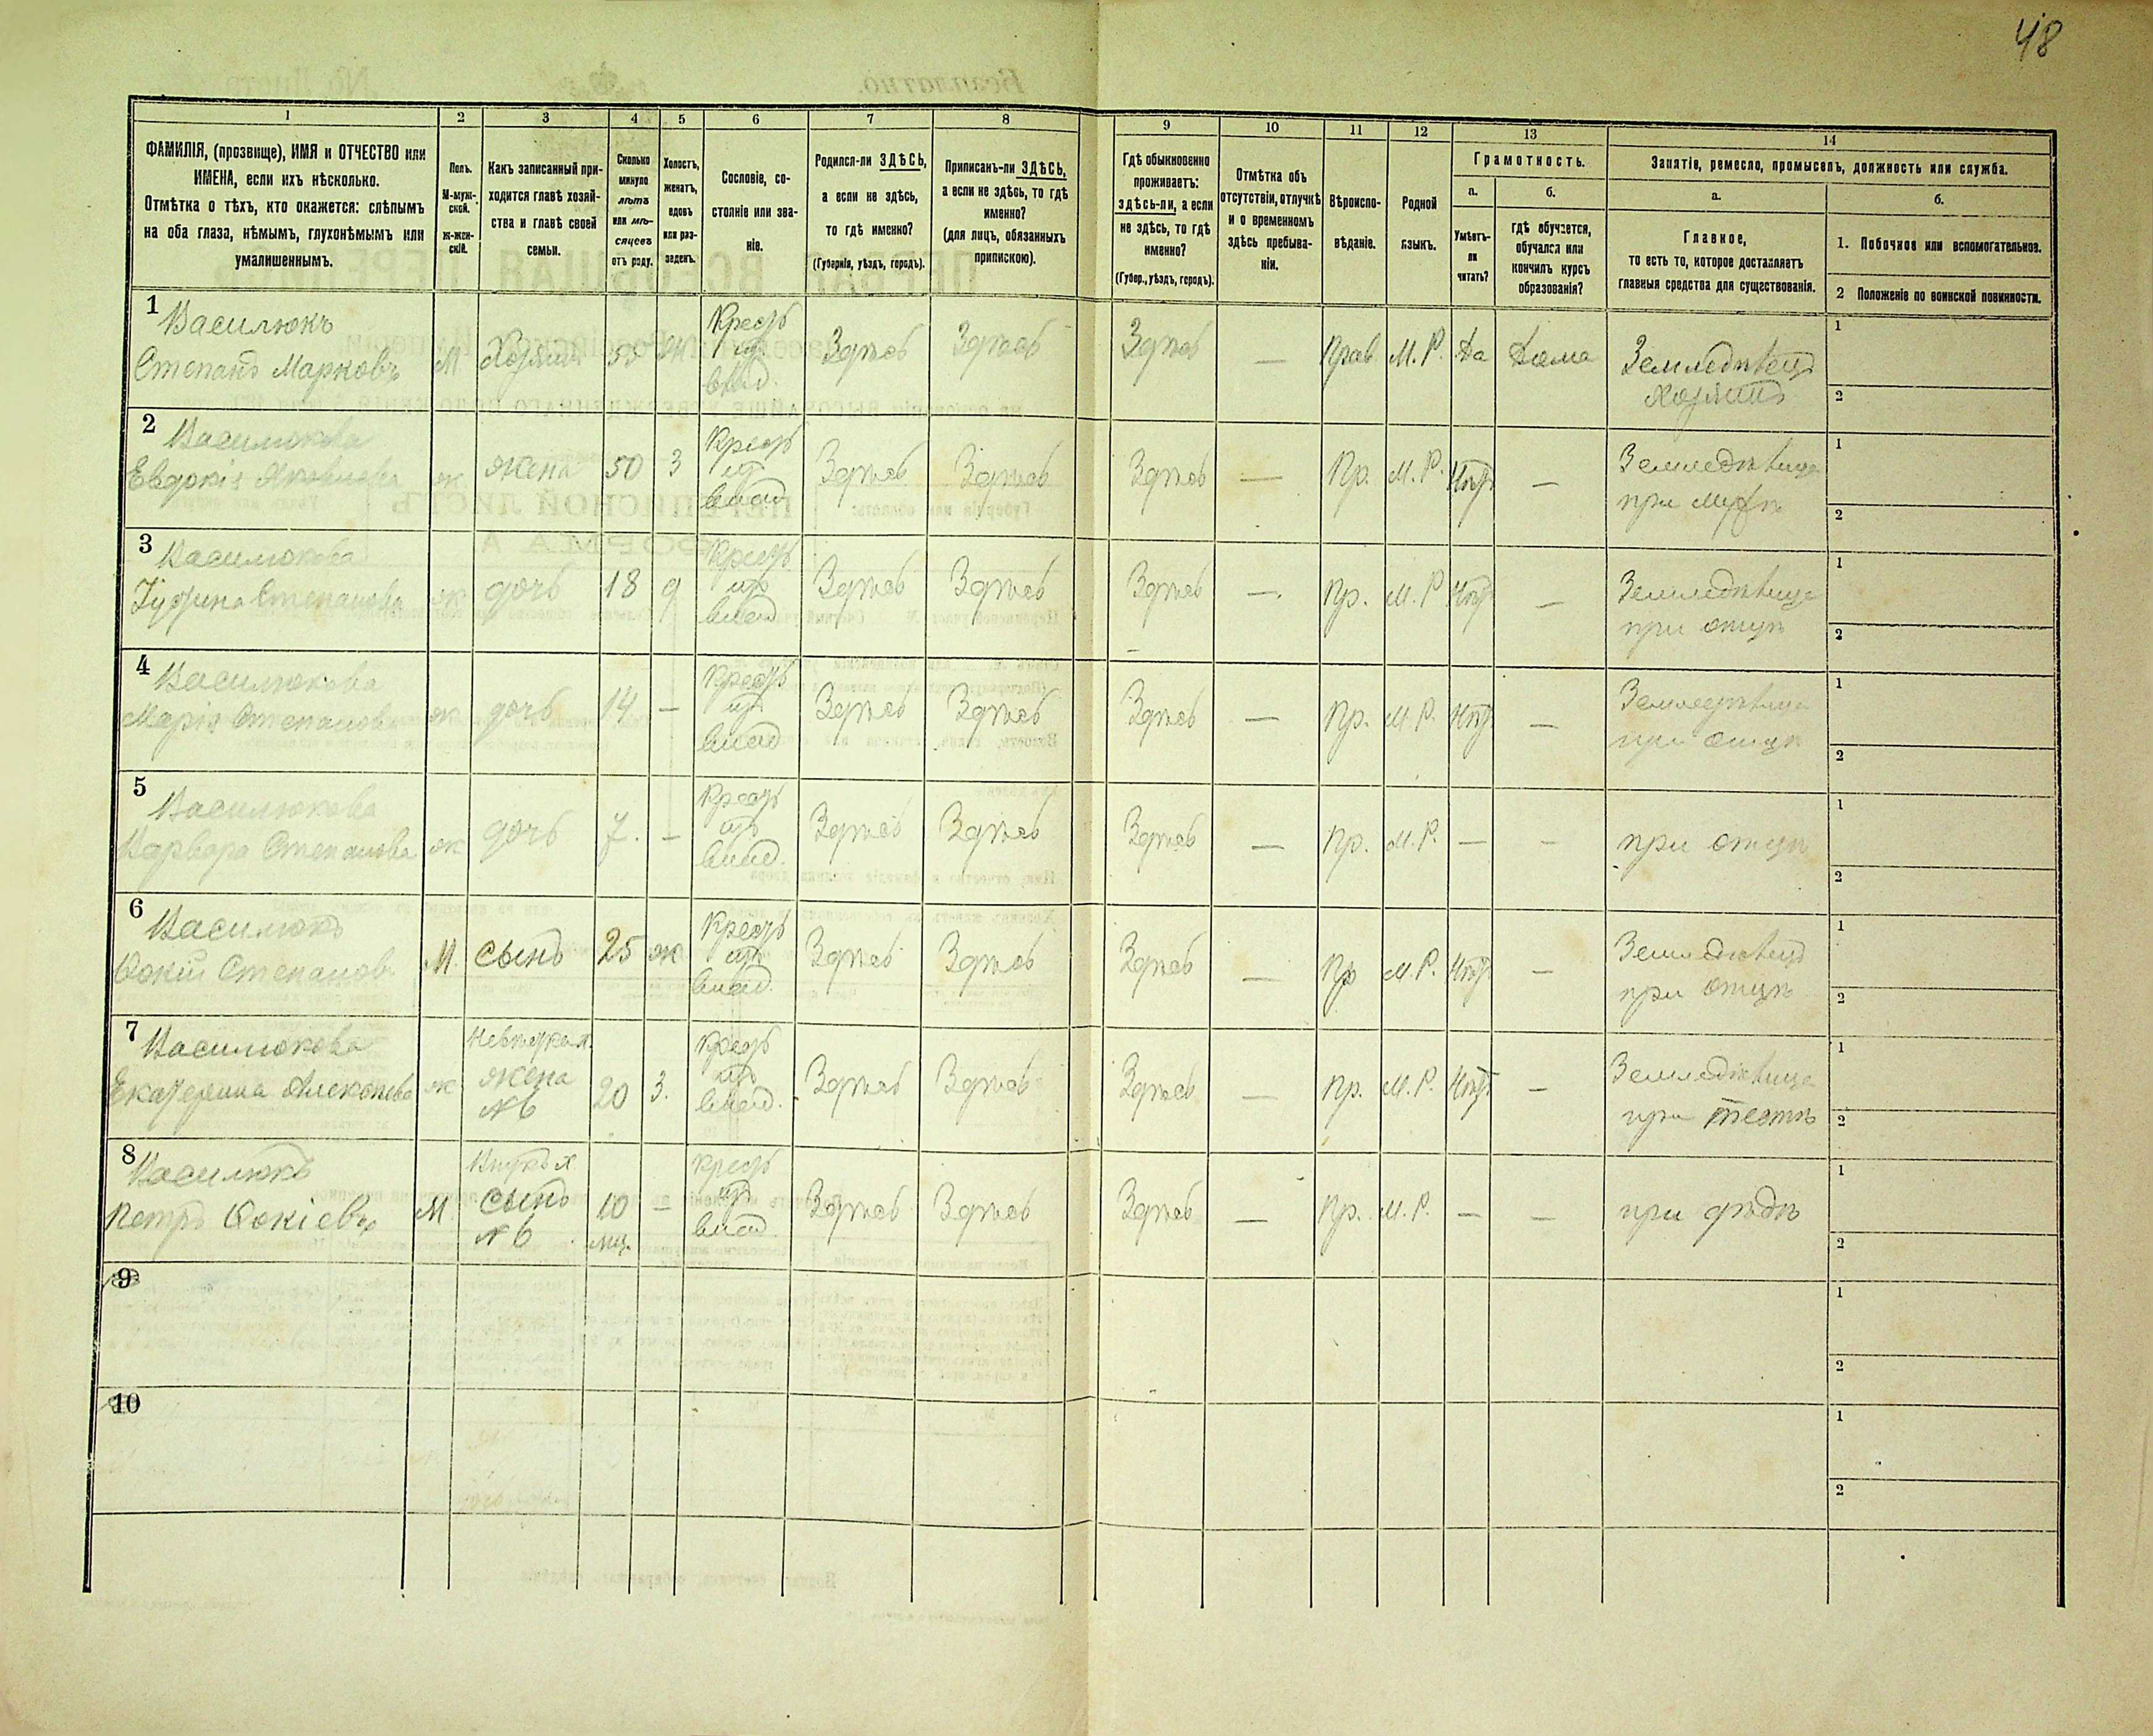 48
1
2
3
4
5
6
7
8
9
10
11
12
13
14
ФАМИЛІЯ, (прозвище), ИМЯ и ОТЧЕСТВО или
ИМЕНА, если ихъ нѣсколько.
Отмѣтка о тѣхъ, кто окажется: слѣпымъ
на оба глаза, нѣмымъ, глухонѣмымъ или
умалишеннымъ.
Полъ.
М-муж-
ской.
Ж-жен-
скій.
Какъ записанный при-
ходится главѣ хозяй-
ства и главѣ своей
семьи.
Сколько
минуло
лѣтъ
или мѣ-
сяцевъ
отъ роду.
Холостъ,
женатъ,
вдовъ
или раз-
веденъ.
Сословіе, со-
стояніе или зва-
ніе.
Родился-ли ЗДѢСЬ,
а если не здѣсь,
то гдѣ именно?
(Губернія, уѣздъ, городъ).
Приписанъ-ли ЗДѢСЬ,
а если не здѣсь, то гдѣ
именно?
(для лицъ, обязанныхъ
припискою).
Гдѣ обыкновенно
проживаетъ:
здѣсь-ли, а если
не здѣсь, то гдѣ
именно?
(Губер., уѣздъ, городъ).
Отмѣтка объ
отсутствіи, отлучкѣ
и о временномъ
здѣсь пребыва-
ніи.
Вѣроиспо-
вѣданіе.
Родной
языкъ.
Грамотность.
а.
б.
Умѣетъ-
ли
читать?
Гдѣ обучается,
обучался или
кончилъ курсъ
образованія?
Занятіе, ремесло, промыселъ, должность или служба.
а.
б.
Главное,
то есть то, которое доставляетъ
главныя средства для существованія.
1. Побочное или вспомогательное.
2 Положеніе по воинской повинности.
1 Василюкъ
Степанъ Марковъ М. Хозяинъ 55 Ж Крест. изъ влад. Здѣсь Здѣсь Здѣсь — Прав М. Р. Да Дома Земледѣлецъ
Хозяинъ
1
2
2 Василюкова
Евдокія Яковлева ж жена 50 З Крест. изъ влад. Здѣсь Здѣсь Здѣсь — Пр. М. Р. Нѣтъ — Земледѣлица
при мужѣ
1
2
3 Василюкова
Степанова ж дочь 18 д Крест. изъ влад. Здѣсь Здѣсь Здѣсь — Пр. М. Р Нѣтъ — Земледѣлица
при отцѣ
1
2
4 Василюкова
Марія Степанова ж дочь 14 — Крест. изъ влад Здѣсь Здѣсь Здѣсь — Пр. М. Р. Нѣтъ — Земледѣлица
при отцѣ
1
2
5 Василюкова
Варвара Степанова ж дочь 7. — Крест. изъ влад. Здѣсь Здѣсь Здѣсь — Пр. М. Р. — — при отцѣ
1
2
6 Василюкъ
Фокій Степановъ М. сынъ 25 ж Крест. изъ влад. Здѣсь Здѣсь Здѣсь — Пр М. Р. Нѣтъ — Земледѣлецъ
при отцѣ
1
2
7 Василюкова
Екатерина Алексѣева ж Невѣстка х. жена №6 20 З. Крест. изъ влад. Здѣсь Здѣсь Здѣсь — Пр. М. Р. Нѣтъ — Земледѣлица
при тестѣ
1
2
8 Василюкъ
Петръ Фокіевъ М. Внукъ х сынъ №6 10 мц. — Крест. изъ влад. Здѣсь Здѣсь Здѣсь — Пр. М. Р. — — при дѣдѣ
1
2
9
1
2
10
1
2